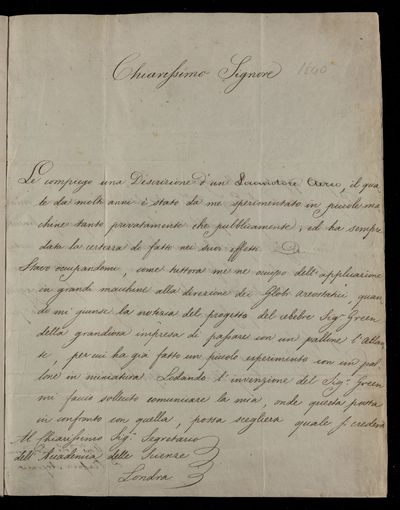 Chiarissimo Signore
1840
Le compiego una Descrizione d'un Aereo, il qua-
le da molti anni è stato da me sperimentato in piccole ma
chine tanto privatamente che pubblicamente, ed ha sempre
data la certezza di fatto nei suoi effetti.
Stavo occupandomi, come tuttora me ne occupo dell'applicazione
in grandi macchine alla direzione dei Globi Areostatici, quan-
do mi giunse la notizia del progetto del celebre Sigr Green
della grandiosa impresa di passare con un pallone l'Atlan-
te, per cui ha già fatto un piccolo esperimento con un pal-
lone in miniatura. Lodando l'invenzione del Sigr Green
mi faccio sollecito comunicare la mia, onde questa posta
in confronto con quella, possa scegliersi quale si crederà
Al Chiarissimo Sigr Segretario
dell'Accademia delle Scienze
Londra